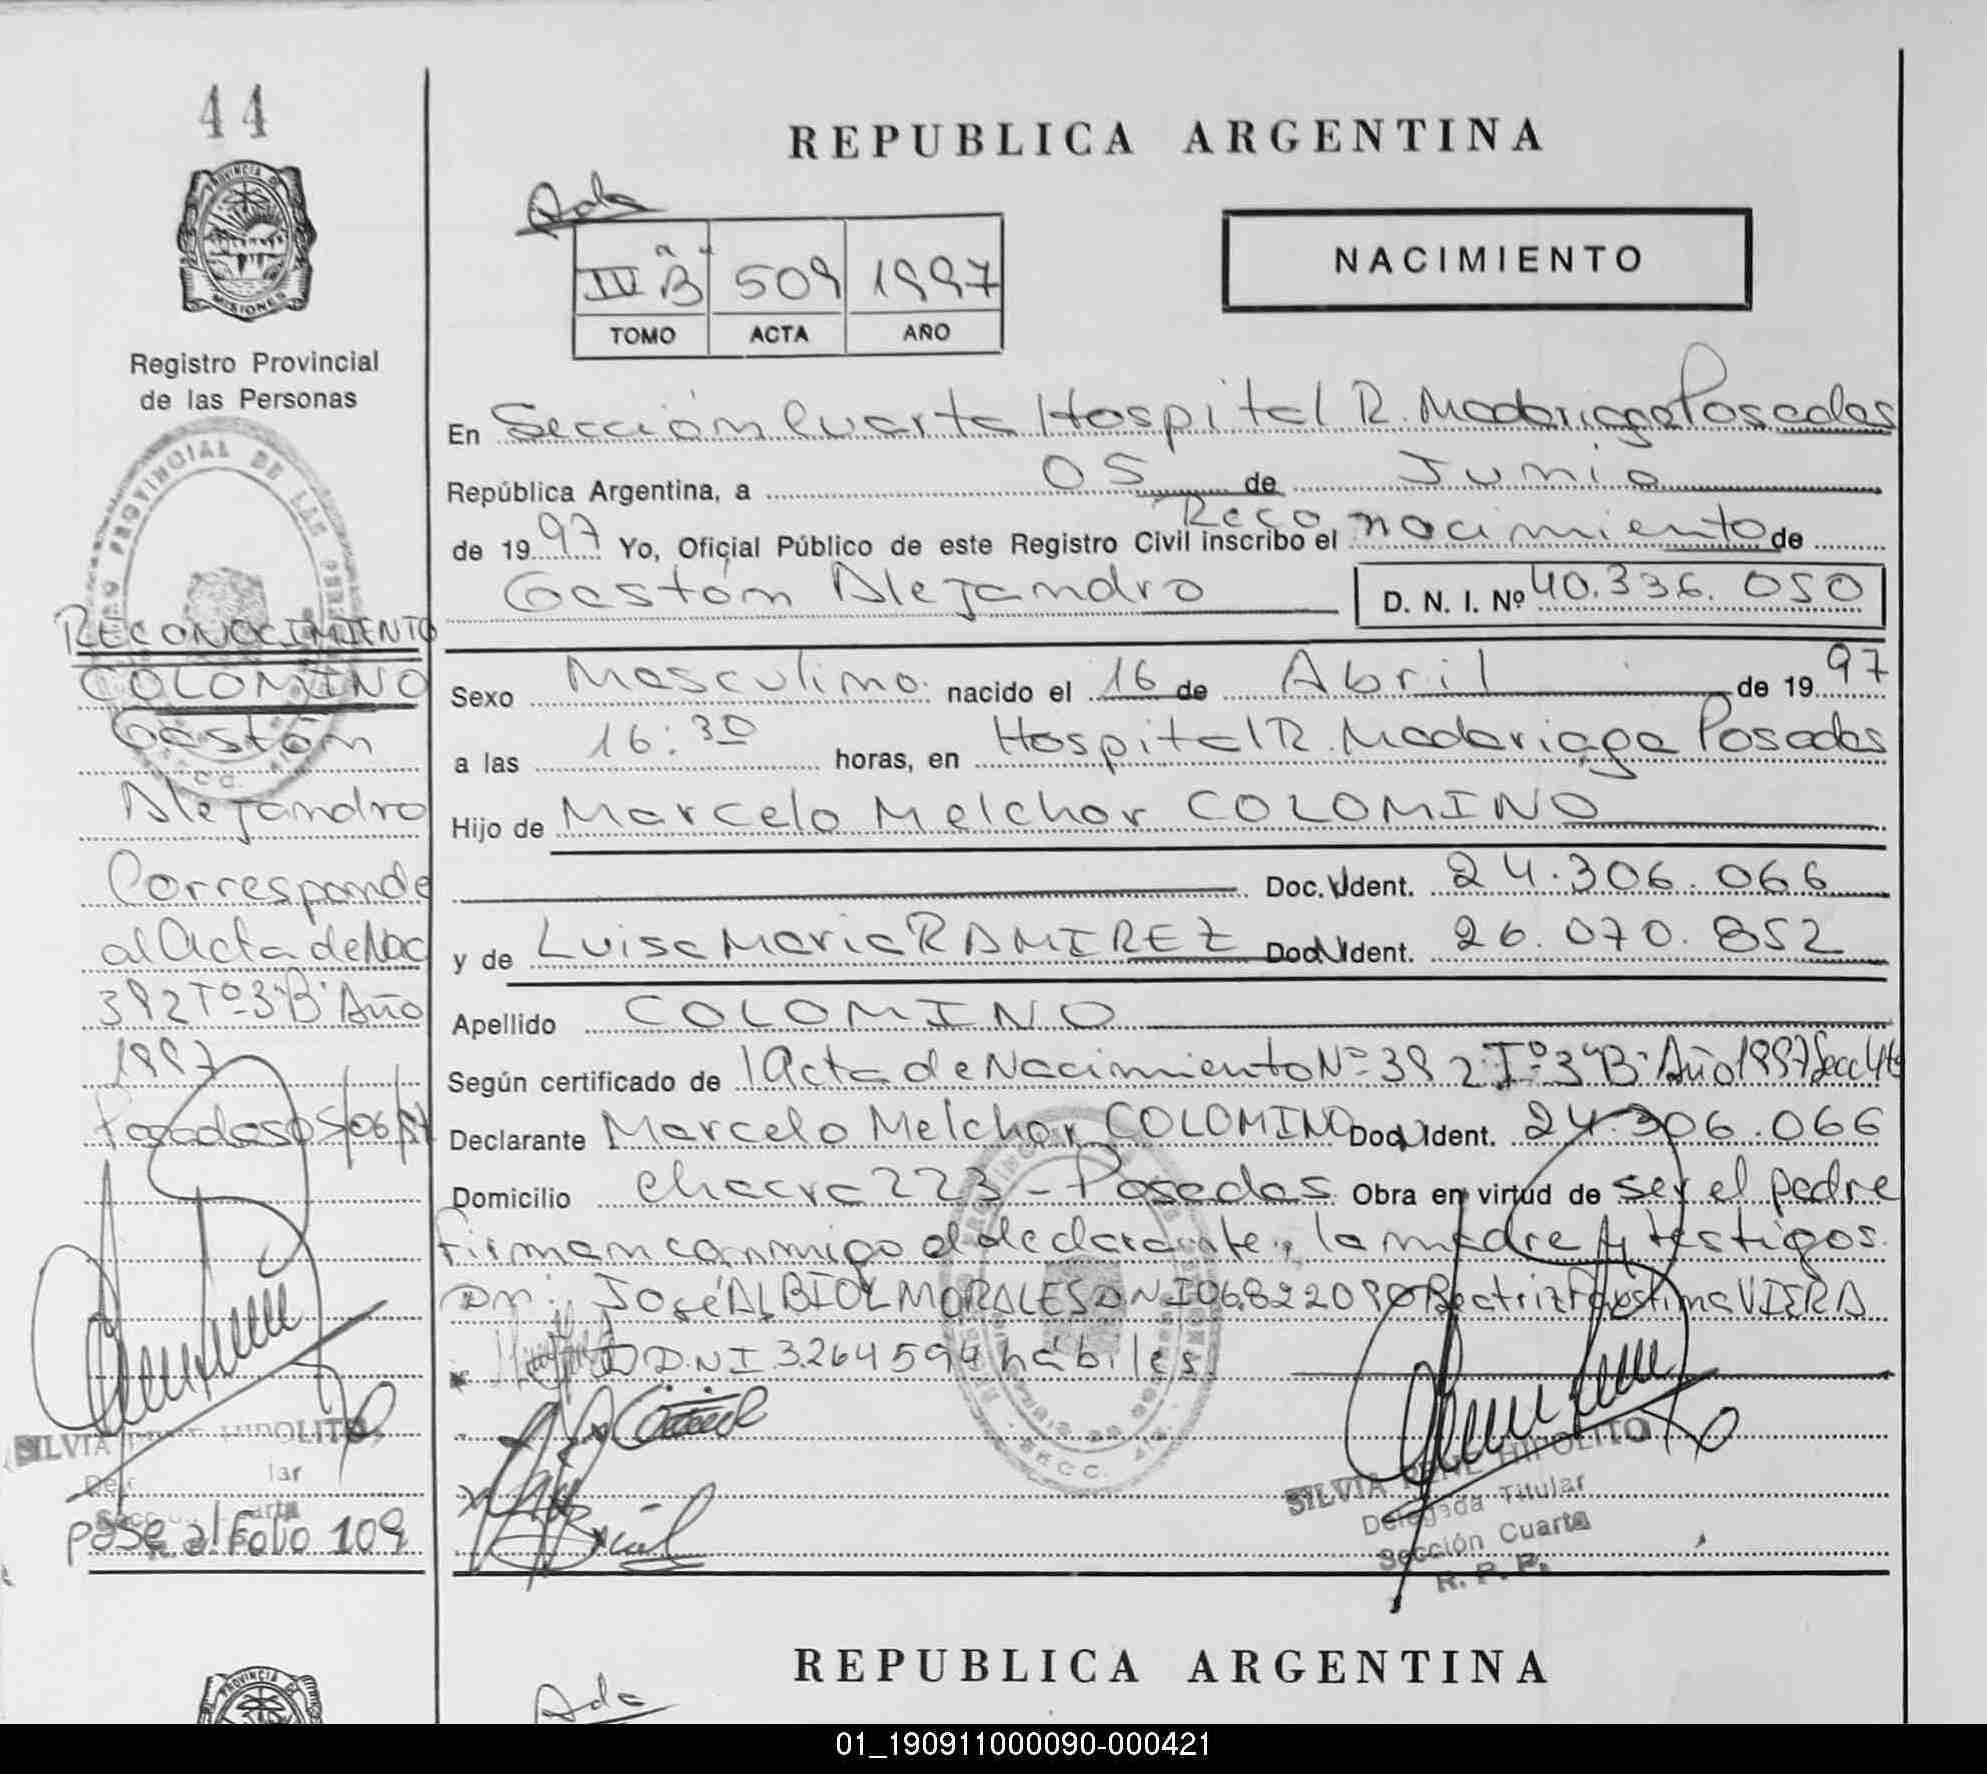 44
PROVINCIA DE
MISIONES
Registro Provincial
de las Personas
RECONOCIMIENTO
COLOMINO
Gastón
Alejandro
Corresponde
al Acta de Nac
392 Tº 3"B" Año
1997
Posadas 05/06/97
SILVIA IRENE HIPOLITO
pase al Folio 109
REPUBLICA ARGENTINA
Ada
IV "B" 509 1997
TOMO ACTA AÑO
NACIMIENTO
En Sección Cuarta Hospital R. Madariaga Posadas
República Argentina, a 05 de Junio
de 1997 Yo, Oficial Público de este Registro Civil inscribo el Reconocimiento de
Gastón Alejandro D. N. I. Nº 40.336.050
Sexo Masculino nacido el 16 de Abril de 1997
a las 16:30 horas, en Hospital R. Madariaga Posadas
Hijo de Marcelo Melchor COLOMINO
Doc. Ident. 24.306.066
y de Luisa Maria RAMIREZ Doc. Ident. 26.070.852
Apellido COLOMINO
Según certificado de l Acta de Nacimiento Nº 392 Tº 3"B" Año 1997 Secc 4ta
Declarante Marcelo Melchor COLOMINO Doc. Ident. 24.306.066
Domicilio Chacra 223 - Posadas Obra en virtud de ser el padre
firman conmigo el declarante, la madre y testigos.
Dn: José ALBIOL MORALES DNI 06822090 Beatriz Faustina VIERA
D.N.I 3264594 hábiles
SILVIA IRENE HIPOLITO
Delegada Titular
Sección Cuarta
R. P. P.
REPUBLICA ARGENTINA
PROVINCIA
Ada
01_190911000090-000421